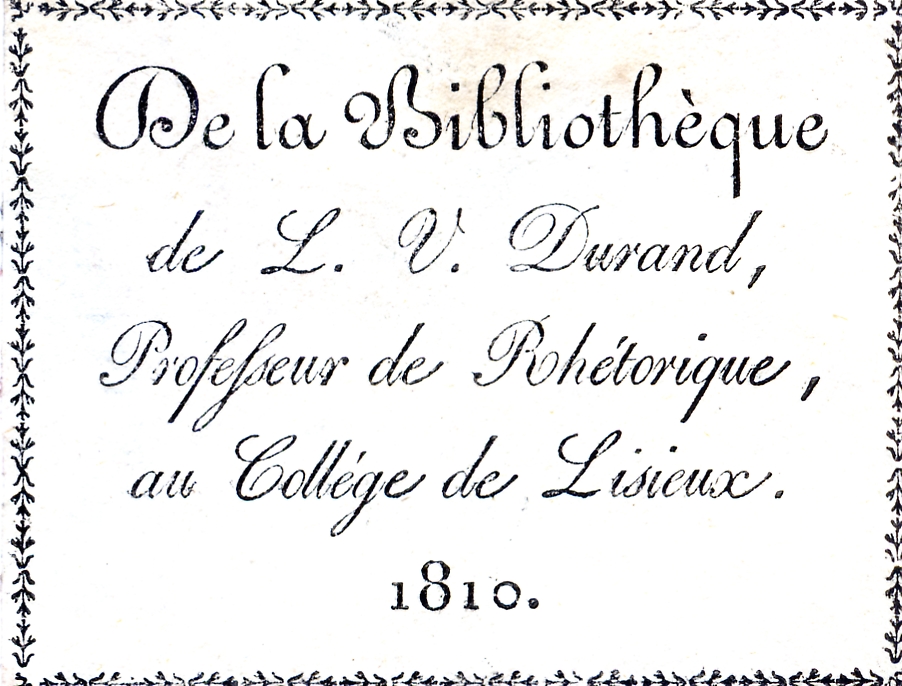 De la Bibliothèque
de L. V. Durand,
Professeur de Rhétorique,
au Collége de Lisieux.
1810.